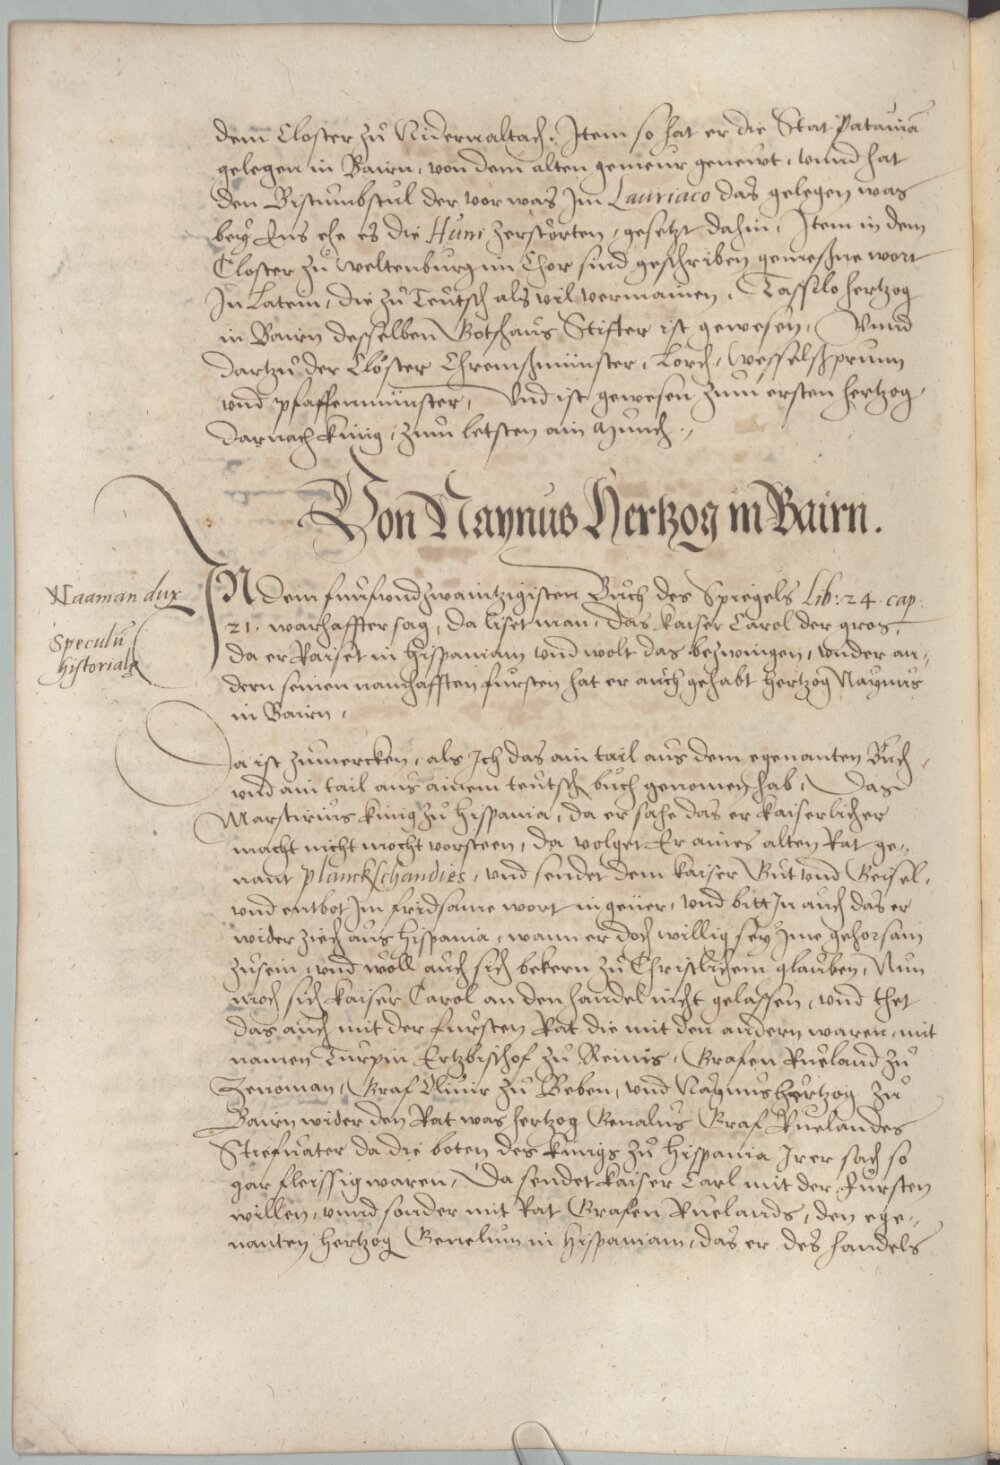 dem Closter zů Nidernaltach, Item so hat er die Stat Patauia
gelegen in Bairn, von dem alten gemeur geneurt, vnnd hat
den Bistumbstul der vor was Im Lauriaco das gelegen was
beÿ Ens ehe es die Huni zerstörten, gesetzt dahin, Item in dem
Closter zů Weltenburg im Chor sind geschriben gemeßne wort
In Latein, die zů Teutsch als vil vermainen, Tassilo hertzog
in Bairn desselben Gotshaus Stifter ist gewesen, Vnnd
dartzů der Clöster Chremßmünster, Lorch, Wesselsprunn
vnd Pfaffenmünster, Vnd ist gewesen zum ersten hertzog,
darnach künig, zum letsten ain Münch.
Von Naynus Hertzog in Bairn.
Naaman dux
Speculũ
historiale
IN dem funfvndzwaintzigisten Buch des Spiegels Lib: 24. cap.
21. warhaffter sag, da liset man, das kaiser Carol der gros,
da er Raiset in Hispaniam vnd wolt das bezwingen, vnder an-
dern seinen nanhafften fursten hat er auch gehabt hertzog Naynus
in Bairn,
Da ist zůmercken, als Ich das ain tail aus dem egenanten Buch,
vnd ain tail aus ainem teutsch buch genomen hab, Das
Marsirius künig zů Hispania, da er sahe das er kaiserlicher
macht nicht mocht vorsteen, da volget Er aines alten Rat ge-
nant Planckschandies, vnd sendet dem kaiser Gut vnd Geisel,
vnd entbot Im fridsame wort in geüer, vnd bitt In auch das er
wider ziech aus Hispania, wann er doch willig seÿ Ime gehorsam
zůsein, vnd wöll auch sich bekern zů Christlichem glauben, Nun
moch sich kaiser Carol an den handel nicht gelassen, vnd thet
das auch mit der fürsten Rat die mit den andern waren, mit
namen Turpin Ertzbischof zů Reims, Grafen Ruland zů
Zenoman, Graf Oliuir zů Beben, vnd Naÿmus hertzog zů
Bairn wider den Rat was hertzog Genalus Graf Ruelandes
Stiefuater da die boten des künigs zů Hispania Irer sach so
gar fleissig waren, Da sendet kaiser Carl mit der Fürsten
willen, vnnd sonder mit Rat Grafen Ruelands, den ege-
nanten hertzog Genelum in Hispaniam, das er des handels